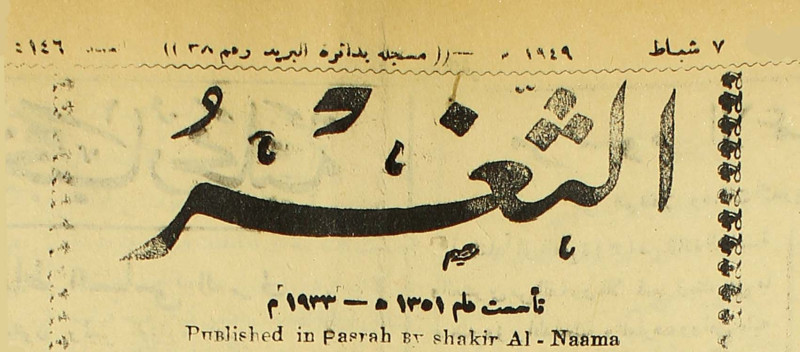 ٧ شباط ١٩٤٩ م — (( مسجله بدائرة البريد رقم ٣٨ )) العدد ٤١٤٦
الثغر
تأسست عام ١٣٥١ ه — ١٩٣٣ م
Published in Pasrah By shakir Al - Naama